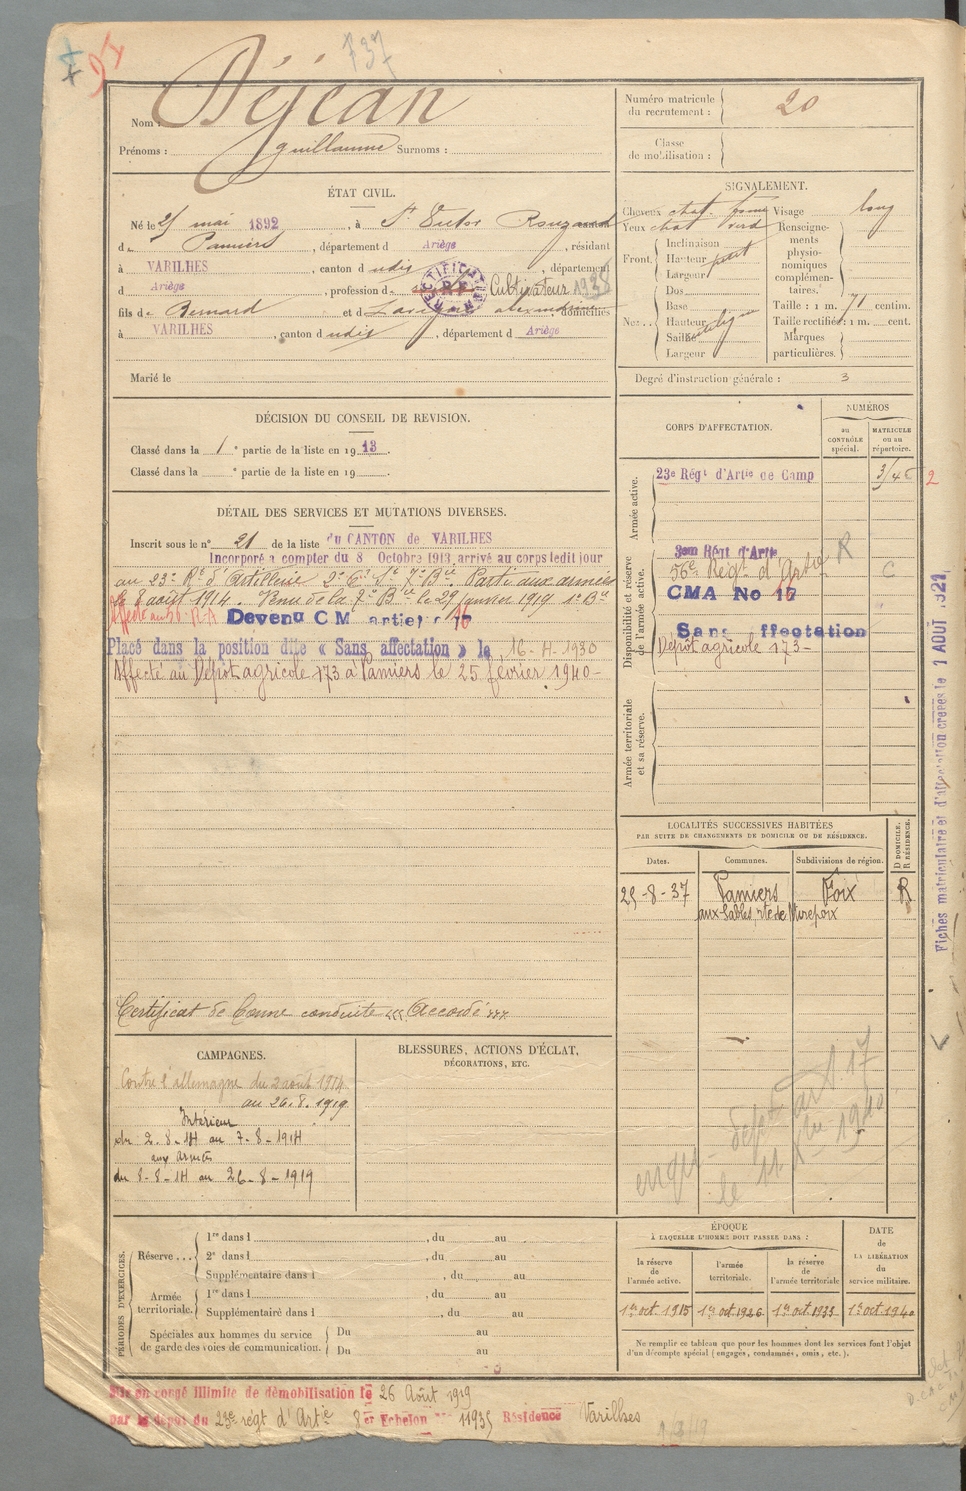 737
Nom : Déjean
Prénoms : guillaume Surnoms :
Numéro matricule du recrutement : 20
Classe de mobilisation :
ÉTAT CIVIL.
Né le 21 mai 1892, à St Victor Rouzaud
d Pamiers, département d Ariège, résidant
à VARILHES, canton d udit, département
d Ariège, profession d Cultivateur 1938
RECTIFICATION R F
fils de Bernard et d domiciliés
à VARILHES, canton d udit, département d Ariège
Marié le
SIGNALEMENT.
Cheveux chat.
Yeux chat verd
Front. Inclinaison
Hauteur petit
Largeur
Nez. Dos
Base
Hauteur
Saillie
Largeur
Visage long
Renseignements physionomiques complémentaires.
Taille : 1 m. 71 centim.
Taille rectifiée : 1 m. cent.
Marques particulières.
Degré d'instruction générale : 3
DÉCISION DU CONSEIL DE REVISION.
Classé dans la 1e partie de la liste en 1913.
Classé dans la e partie de la liste en 19 .
DÉTAIL DES SERVICES ET MUTATIONS DIVERSES.
Inscrit sous le n° 21 de la liste du CANTON de VARILHES
Incorporé a compter du 8 Octobre 1913, arrivé au corps ledit jour
au 23e Rt d'Artillerie 2e Cr St 7e Bie. Parti aux armées
le 8 août 1914. Venu de la 7e Bie le 29 janvier 1919 1e Bie
Affecté au 56e RA Devenu C M artie n° 16
Placé dans la position dite « Sans affectation » le 16-4-1930
Affecté au Dépôt agricole 173 à Pamiers le 25 février 1940-
Certificat de bonne conduite <<< Accordé >>>
CORPS D'AFFECTATION.
NUMÉROS
au CONTRÔLE spécial.
MATRICULE ou au répertoire.
Armée active.
23e Régt d'Artie de Camp
2
Disponibilité et réserve de l'armée active.
3em Régt d'Artie
56e Régt d'Artie R
C
CMA No 17
Sans ffectation
Dépôt agricole 173-
Armée territoriale et sa réserve.
Fiches matriculaire et d'affectation créées le 1 AOUT 1921
LOCALITÉS SUCCESSIVES HABITÉES
PAR SUITE DE CHANGEMENTS DE DOMICILE OU DE RÉSIDENCE.
Dates.
Communes.
Subdivisions de région.
D DOMICILE. R RÉSIDENCE.
25-8-37 Pamiers Foix R
aux Sables, rte de Mirepoix
art 17
le 11 Xbre 1940
CAMPAGNES.
Contre l'allemagne du 2 août 1914
au 26.8.1919
Intérieur
du 2-8-14 au 7-8-1914
aux armées
du 8-8-14 au 26-8-1919
BLESSURES, ACTIONS D'ÉCLAT,
DÉCORATIONS, ETC.
PÉRIODES D'EXERCICES.
Réserve...
1re dans l , du au
2e dans l , du au
Supplémentaire dans l , du au
Armée territoriale.
1re dans l , du au
Supplémentaire dans l , du au
Spéciales aux hommes du service de garde des voies de communication.
Du au
Du au
ÉPOQUE
À LAQUELLE L'HOMME DOIT PASSER DANS :
la réserve de l'armée active.
l'armée territoriale.
la réserve de l'armée territoriale
DATE de LA LIBÉRATION du service militaire.
1er oct. 1915
1er oct. 1926
1er oct. 1933
1er oct. 1940
Ne remplir ce tableau que pour les hommes dont les services font l'objet
d'un décompte spécial (engagés, condamnés, omis, etc.).
Mis en congé illimité de démobilisation le 26 Août 1919
par le dépôt du 23e régt d'Artie 8er Echelon Résidence Varilhes